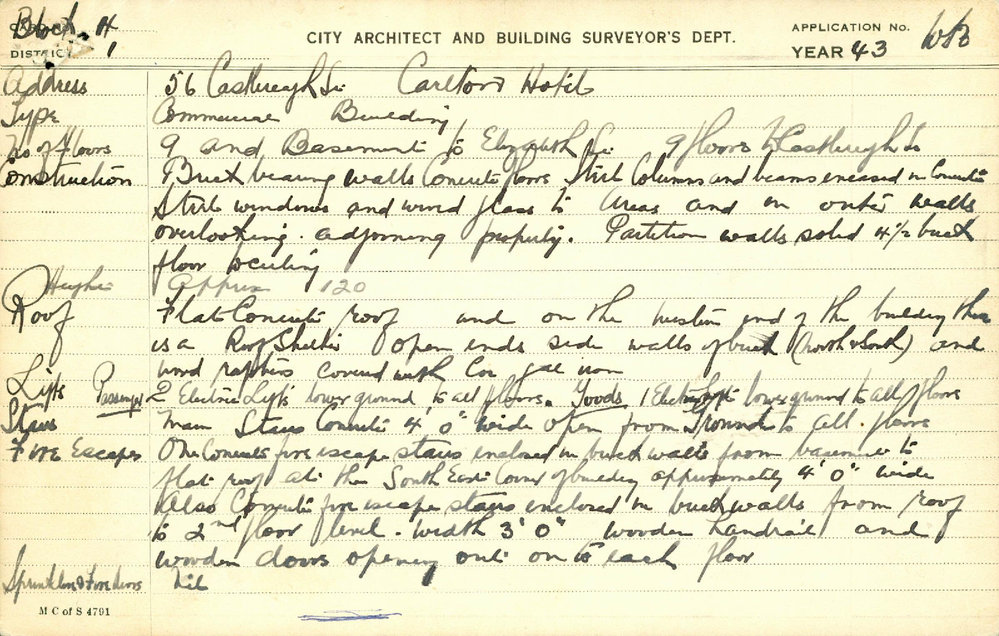 Block H
DISTRICT 1
CITY ARCHITECT AND BUILDING SURVEYOR'S DEPT.
APPLICATION No.
YEAR 43
Address 56 Castlereagh St. Carlton Hotel
Type Commercial Building
No of Floors 9 and Basement to Elizabeth St. 9 floors to Castlereagh St
Construction Brick bearing walls Concrete floors Steel Columns and beams encased in Concrete
Steel windows and wired glass to areas and in outer walls
overlooking adjoining property. Partition walls solid 4½ brick
floor to ceiling
Height Approx 120
Roof Flat Concrete roof and on the western end of the building there
is a Roof Shelter open ends side walls of brick (North & South) and
wood rafters covered with Cor gal iron
Lifts Passenger 2 Electric Lifts lower ground to all floors. Goods 1 Electric Lift lower ground to all floors
Stairs Main Stairs Concrete 4' 0" wide open from Ground to all floors
Fire Escapes One Concrete fire escape stairs enclosed in brick walls from basement to
flat roof at the South East Corner of building approximately 4' 0" wide
Also Concrete fire escape stairs enclosed in brick walls from roof
to 2nd floor level. width 3' 0" wooden handrail and
wooden doors opening out on to each floor
Sprinklers & Fire doors Nil
M C of S 4791